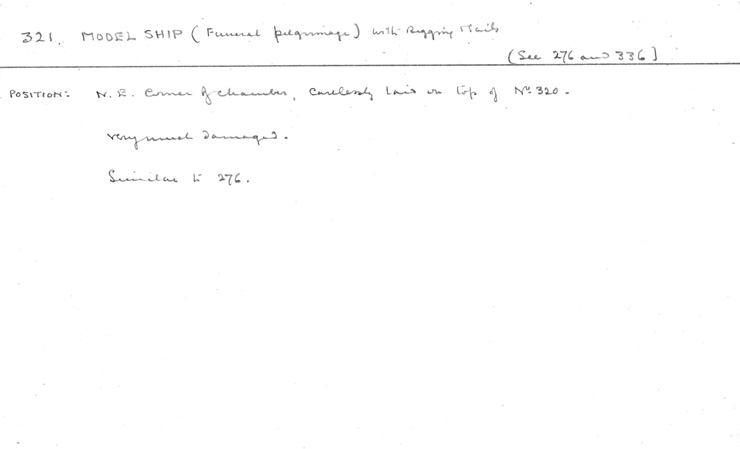 321. MODEL SHIP (Funeral pilgrimage) with Rigging & Sails
(See 276 and 336)
POSITION: N.E. Corner of chamber, carelessly laid on top of Nº 320.
Very much damaged.
Similar to 276.